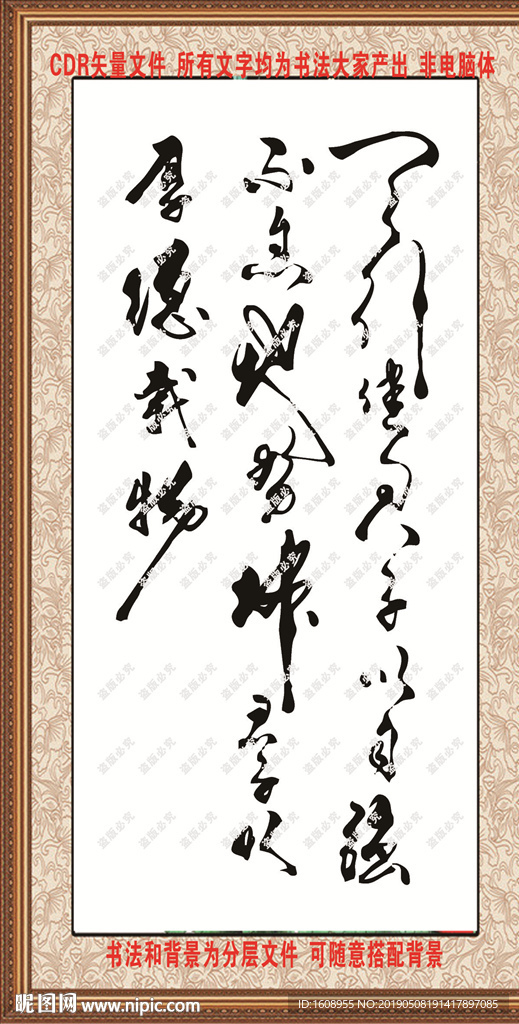 CDR矢量文件 所有文字均为书法大家产出 非电脑体
天行健君子以自强
不息地势坤君子以
厚德载物
书法和背景为分层文件 可随意搭配背景
昵图网 www.nipic.com
ID:1608955 NO:20190508191417897085
盗版必究